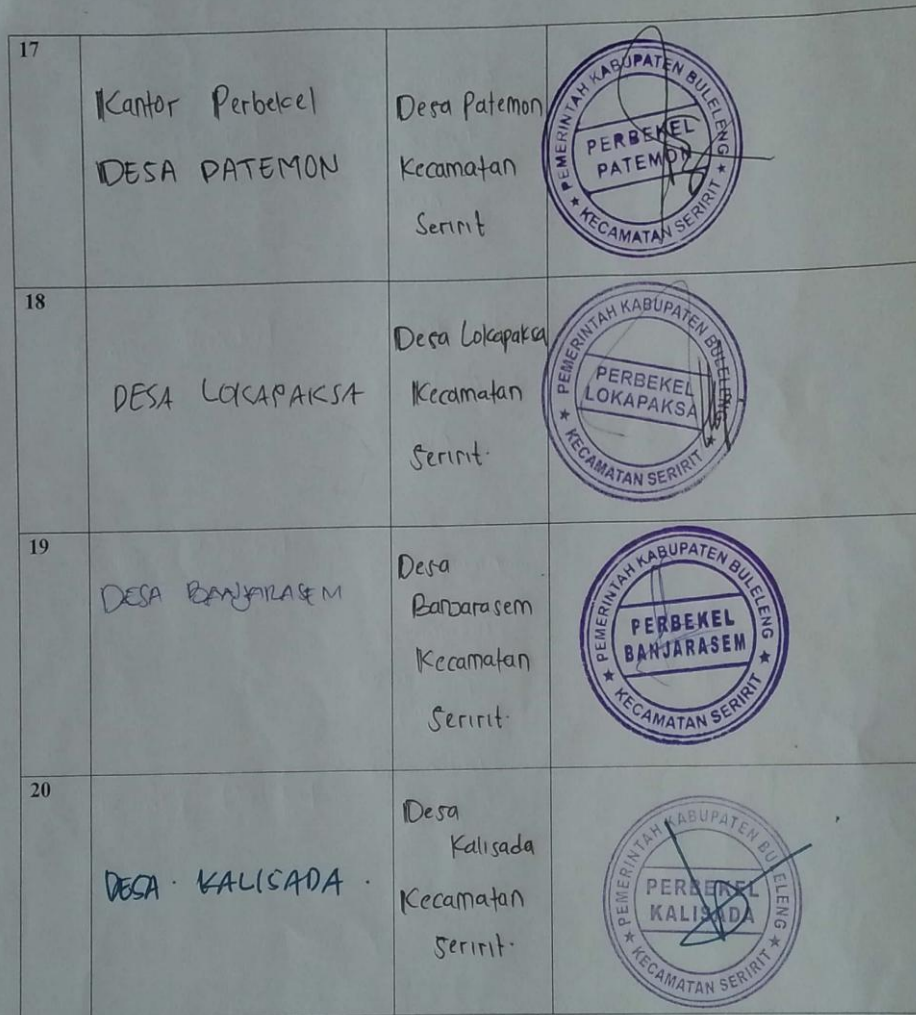 17
Kantor Perbekel
DESA PATEMON
Desa Patemon
Kecamatan
Seririt
PEMERINTAH KABUPATEN BULELENG
PERBEKEL
PATEMON
★ KECAMATAN SERIRIT ★
18
DESA LOKAPAKSA
Desa Lokapaksa
Kecamatan
Seririt.
PEMERINTAH KABUPATEN BULELENG
PERBEKEL
LOKAPAKSA
★ KECAMATAN SERIRIT ★
19
DESA BANJARASEM
Desa
Banjarasem
Kecamatan
Seririt.
PEMERINTAH KABUPATEN BULELENG
PERBEKEL
BANJARASEM
★ KECAMATAN SERIRIT ★
20
DESA . KALISADA .
Desa
Kalisada
Kecamatan
Seririt.
PEMERINTAH KABUPATEN BULELENG
PERBEKEL
KALISADA
★ KECAMATAN SERIRIT ★